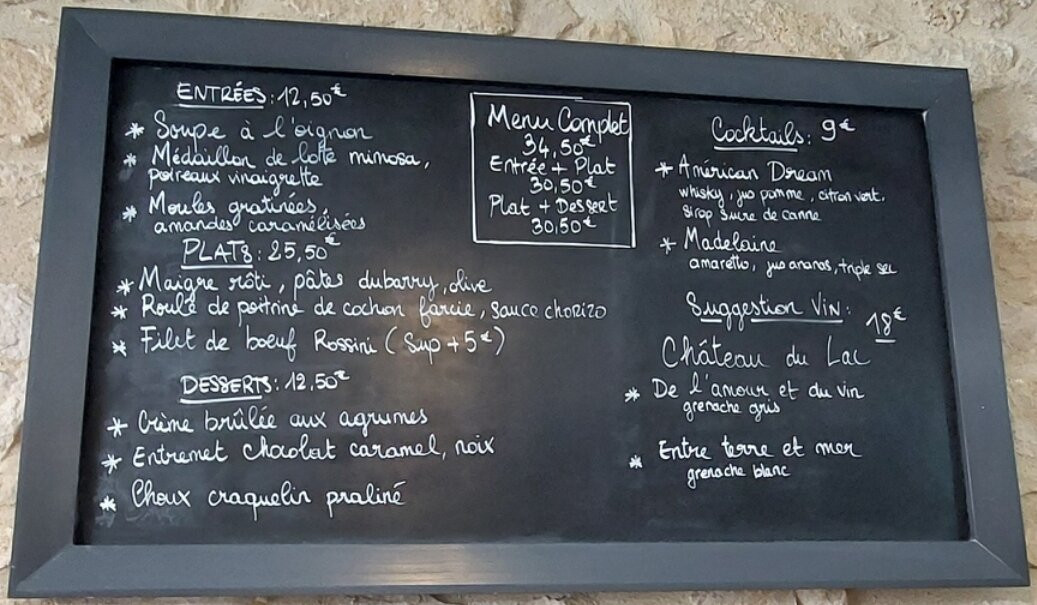 ENTRÉES : 12,50€
* Soupe à l'oignon
* Médaillon de lotte mimosa,
poireaux vinaigrette
* Moules gratinées,
amandes caramélisées
PLATS : 25,50€
* Maigre rôti, pâtes dubarry, olive
* Roulé de poitrine de cochon farcie, sauce chorizo
* Filet de boeuf Rossini (Sup + 5€)
DESSERTS : 12,50€
* Crème brûlée aux agrumes
* Entremet chocolat caramel, noix
* Choux craquelin praliné
Menu Complet
34,50€
Entrée + Plat
30,50€
Plat + Dessert
30,50€
Cocktails : 9€
* Américan Dream
whisky, jus pomme, citron vert,
sirop sucre de canne
* Madelaine
amaretto, jus ananas, triple sec
Suggestion Vin : 18€
Château du Lac
* De l'amour et du vin
grenache gris
* Entre terre et mer
grenache blanc